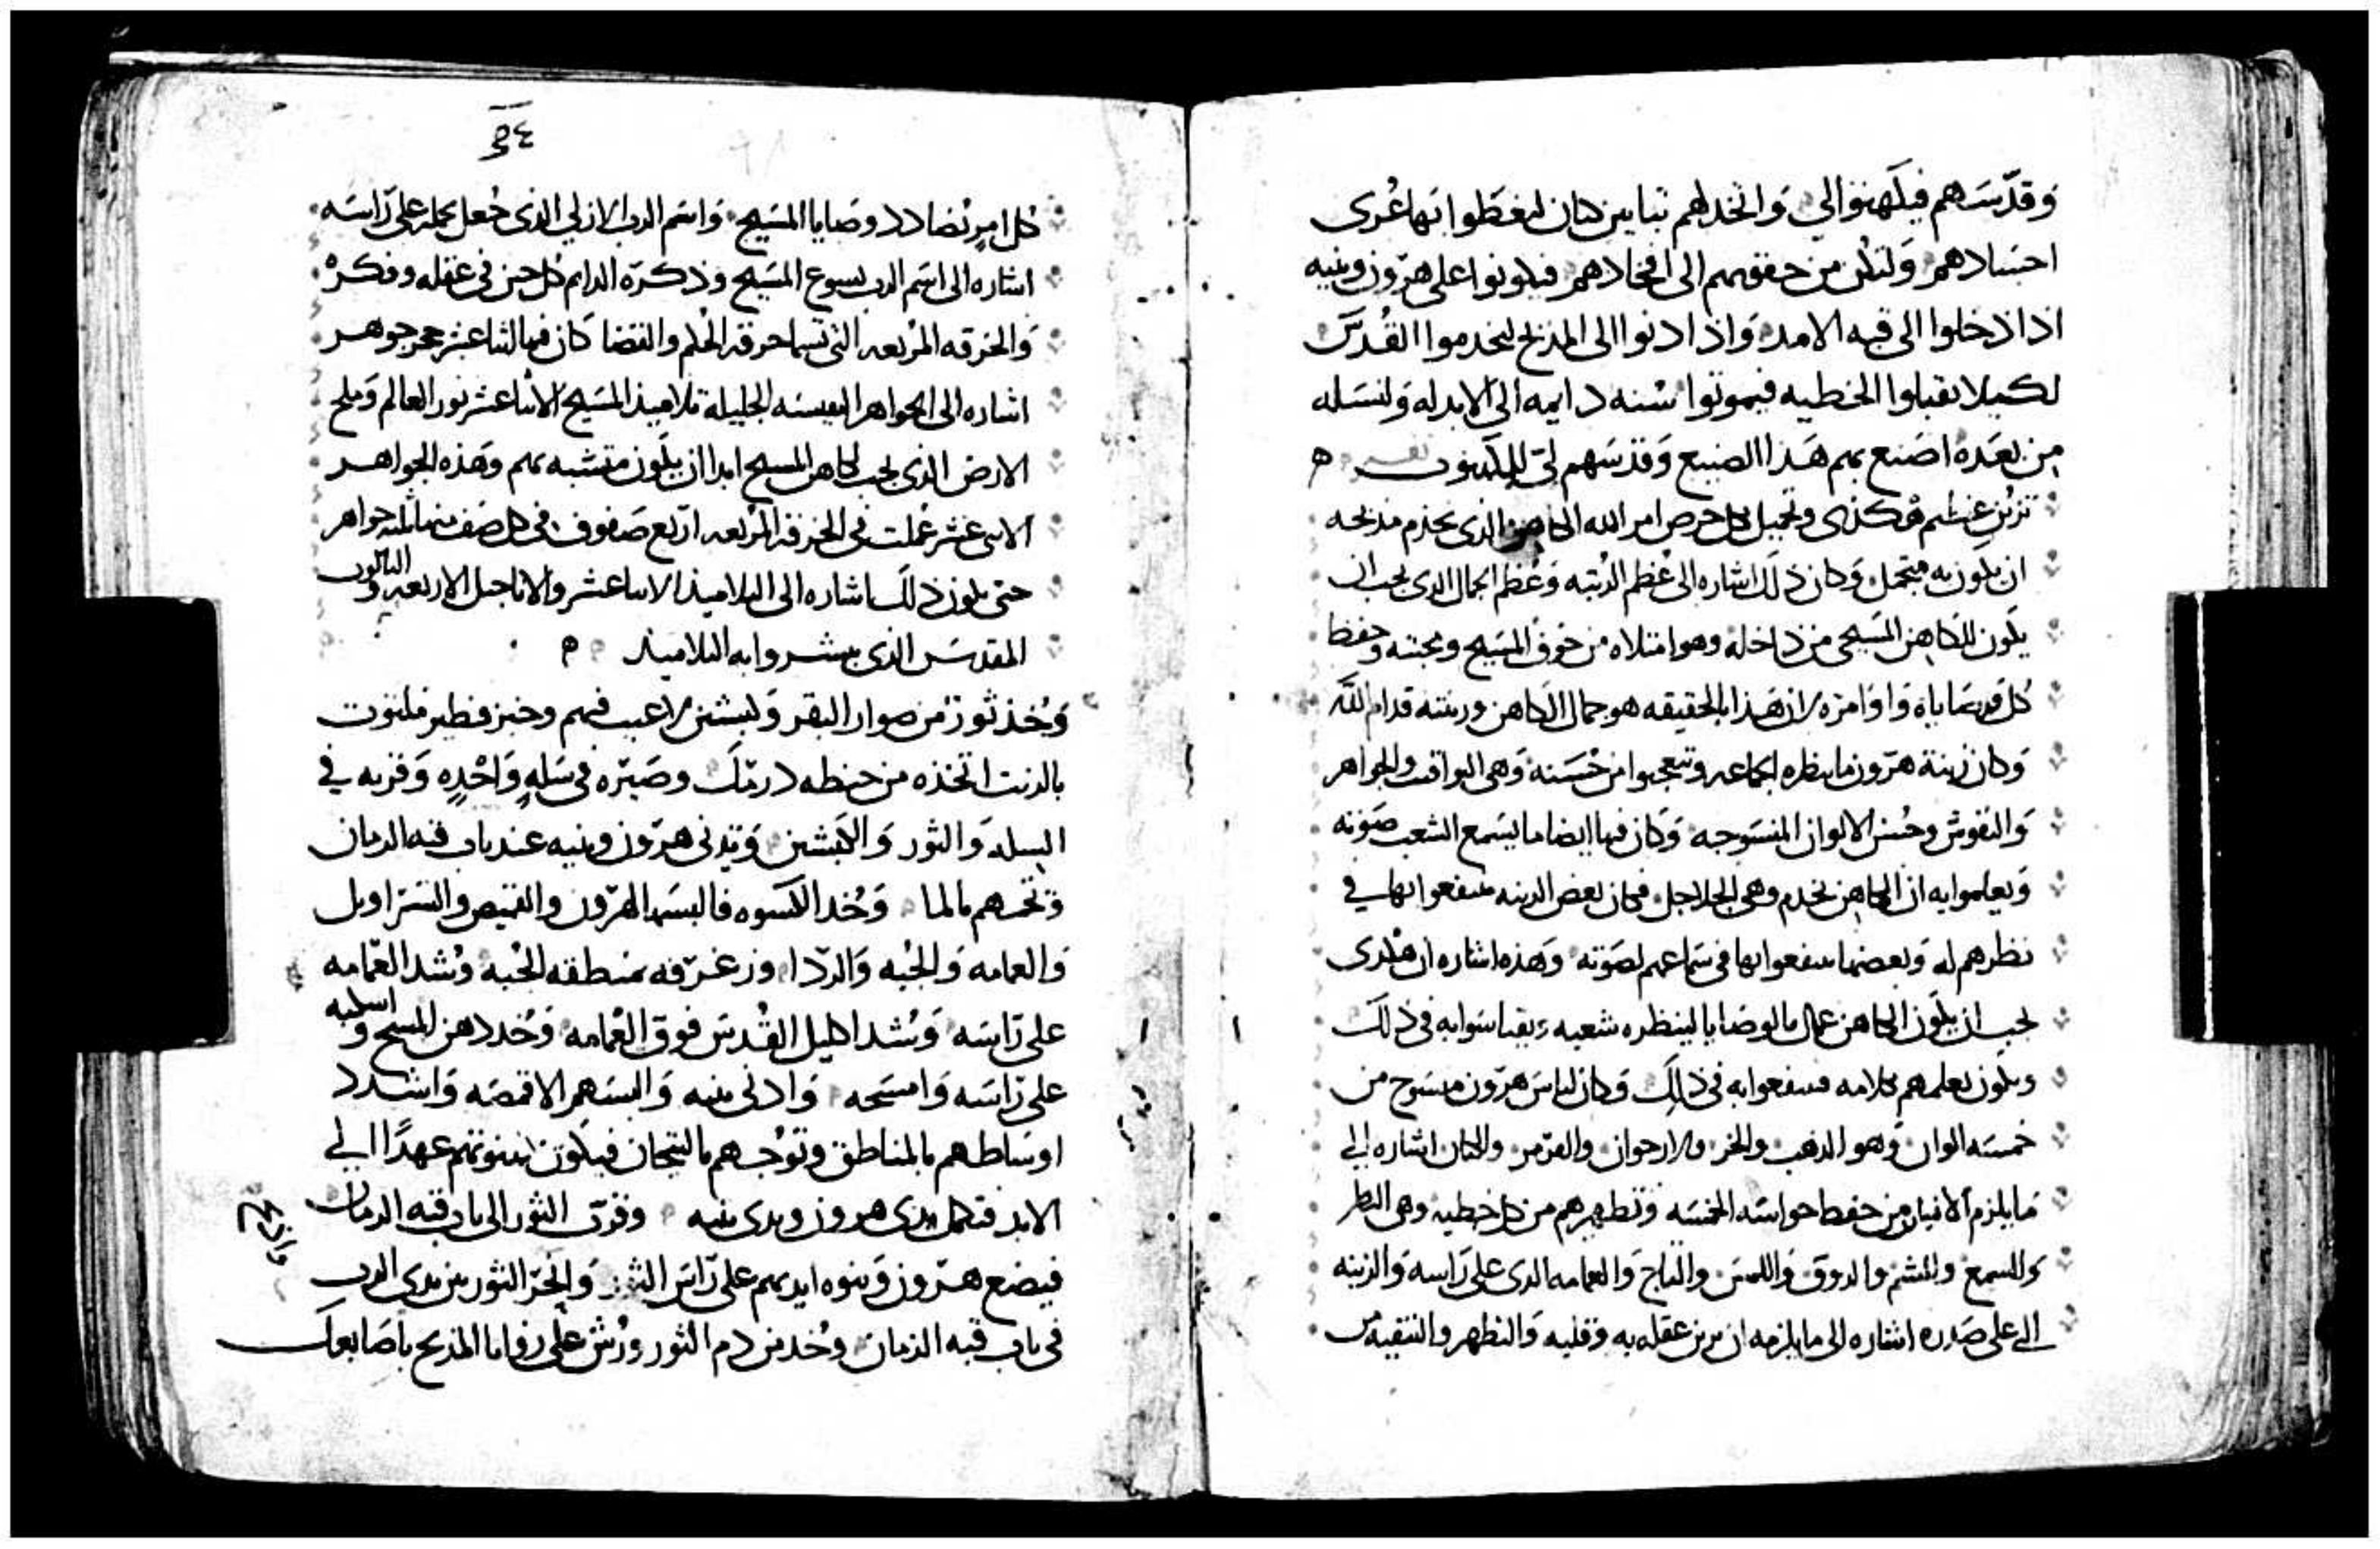 وَقدّسَهم فيكَهنوا لي وَاتخد لهم تبابين كتان ليغطّوا بَها عُرى
احسَادهم وَلتكن من حقويهم الى افخادهم فيكونوا على هرّون وبنيه
اذا دخلوا الى قبه الامد وَاذا دنوا الى المذبح ليخدموا القُدسَ
لكيلا يقبلوا الخطيه فيموتوا سُنه دايمه الى الابد له وَلنسَله
من بَعَده اصَنع بهم هَذا الصنيع وَقدسَهم لي ليكهنون
تزين عظيم هكذى وتجميل بكل حرص امر الله الكاهن الذى يخدم مذبحه
ان يكون به متجمل وَكان ذلك اشاره الى عُظم الرُتبه وَعُظم الجمال الذى يجب ان
يكَون للكاهن المسَيحى من داخله وهو امتلاه من خوف المسَيح ومحبته وحفظ
كُل وصَاياه وَاوَامره لان هَذا بالحقيقه هو جمال الكاهن وزينته قدام الله
وَكان زينة هرّون ما ينظره الجماعه وتيعجبوا من حُسَنه وَهى اليواقيت والجواهر
وَالنقوش وحُسن الالوان المنسَوجه وَكان فيها ايضا ما يسَمع الشعب صَوته
وَيعلموا به ان الكاهن يخدم وهى الجلاجل فكان بعض الزينه ينتفعوا بها في
نظرهم له وَبعضها ينتفعوا بها فى سَماعهم لصَوته وَهذه اشاره ان هكدى
يجب ان يكَون الكاهن عمال بالوصَايا لينظره شعبه ويقتاسَوا به فى ذلك
ويكَون يعلمهم بكلامه فينتفعوا به فى ذلك وَكان لباسَ هرّون منسَوج من
خمسَه الوان وَهو الذهب والخز والارجوان والقرمز والكتان اشاره الي
مَا يلزم من حفظ حواسَه الخمسَه وَتطهيرهم من كل خطيه وهى النظر
وَالسمع والشم والدوق وَاللمسَ والتاج وَالعمامه الدى على رَاسه وَالزينه
الى على صَدره اشاره الى ما يلزمه ان يزين عقله به وَقلبه وَالتطهر والتنقيه من
٦٤
كُل امرٍ يُضادد وصَايا المسَيح وَاسَم الرب الازلي الذى جُعل يحمله على رَاسَه
اشاره الى اسَم الرب يسوع المسَيح وذكرَه الدايم كل حين فى عقله وفكره
وَالخرقه المربعه التى تسما خرقة الحُكم والقضا كَان فيها اثنا عشر حجر جوهر
اشاره الى الجواهر النفيسَه الجليله تلاميذ المسَيح الاثنا عشر نور العالم وَملح
الارض الذى يجب لكاهن المسيح ابدا ان يكَون متشبه بهم وهَذه الجواهر
الاثنى عشر عُملت فى الخرقه المربعه اربَع صَفوف فى كل صَف منها ثلثه جواهر
حتى يكون ذلك اشاره الى التلاميذ الاثنا عشر والاناجيل الاربعه والثالوث
المقدسَ الذى بيشروا به التلاميذ
وَخُذ ثور من صوار البقر وَكبشين لا عيب فيهم وخبز فطير ملتوت
بالزيت اتخذه من حنطه درمَك وصَيّره فى سَلهٍ وَاحُدٍه وَقربه في
السله وَالثور وَالكَبشين وَتدنى هرّون وبنيه عند باب قبه الزمان
وَتحمهم بالما وَخُد الكسوه فالبسَها لهرّون والقميص والسَراويل
وَالعمامه وَالجُبه وَالرّدا وزغرّفه بمنطقة الجُبه وشُد العّمامه
على رَاسَه وَشُد اكليل القُدسَ فوق العُمامه وَخُد دهن المسح واسكبه
على رَاسَه وَامسَحه وَادنى بنيه وَالبسَهم الاقمصَه وَاشدد
اوسَاطهم بالمناطق وتوّجهم بالتيجان فيكَون بينوتهم عهدًا الي
الابد فتكمل يدى هرون ويدى بنيه وقرّب الثور الى باب قبه الزمان
فيضع هرّون وَبنوه ايديهم على رَاسَ الثور وَانحرّ الثور بين يدى الرب
واذبح
فى باب قبه الزمان وخُد من دم الثور ورُش على زوايا المذبح باصَابعك